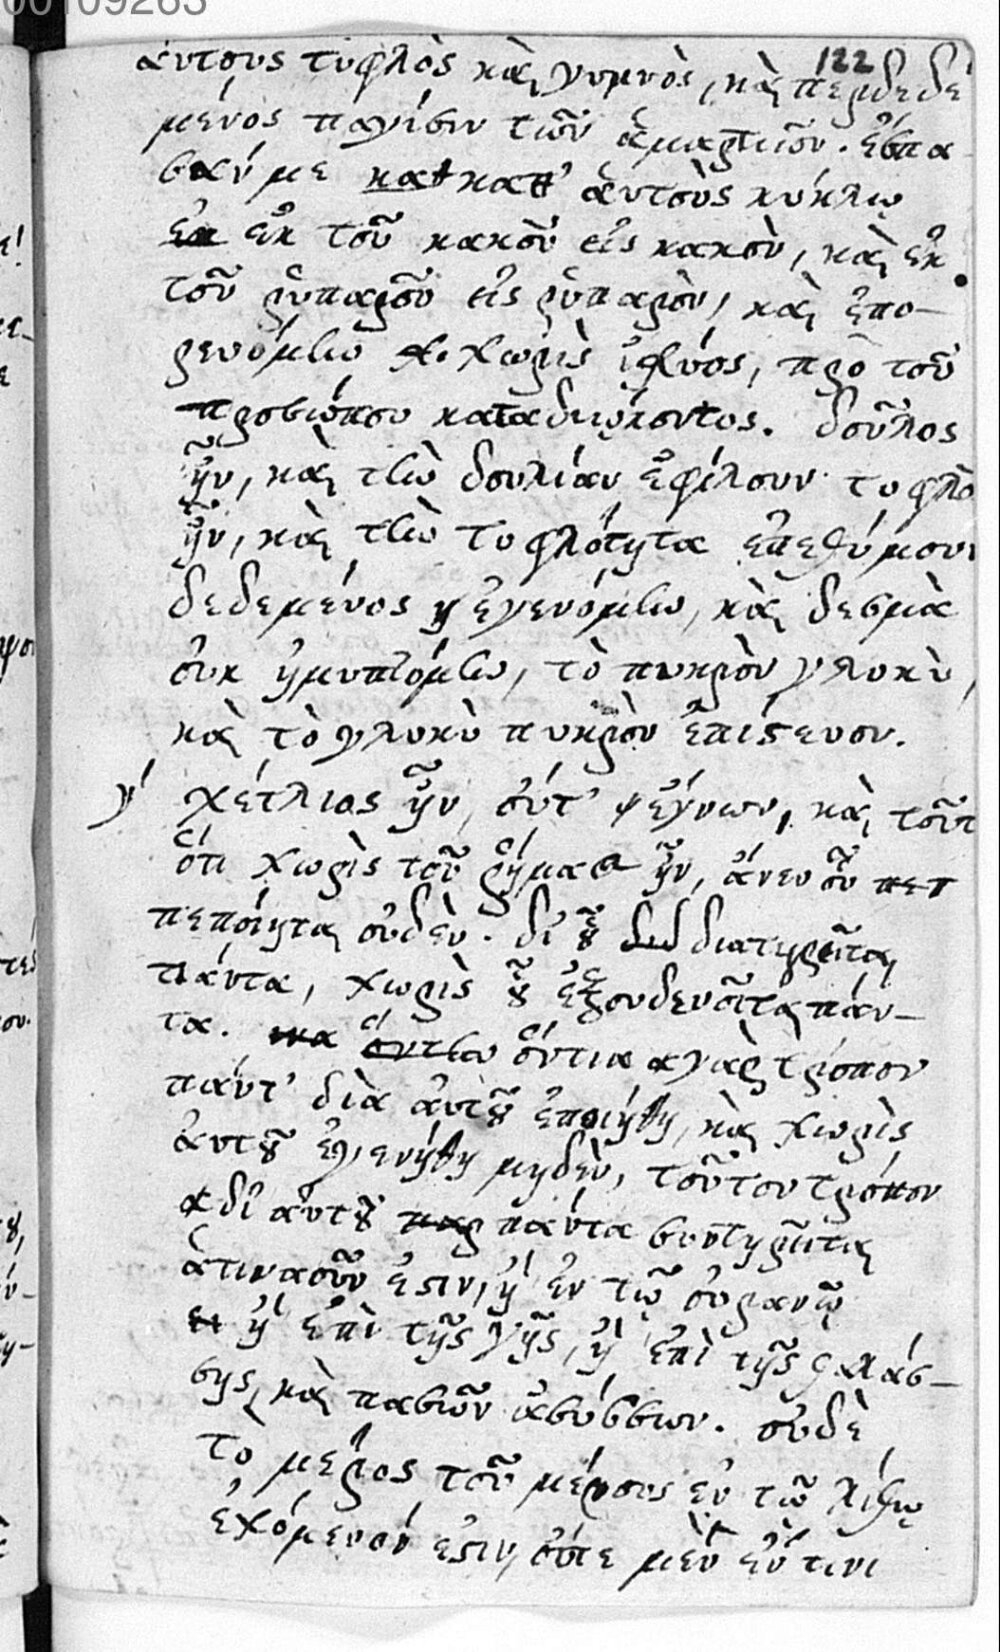 00109263
122
ἀυτοὺς τυφλὸς καὶ γυμνὸς, καὶ περιδεδε
μένος παγίσιν τῶν ἁμαρτιῶν. ἔσπα
σαν με κατ κατ' ἀυτοὺς κύκλῳ
εκ ἐκ τοῦ κακοῦ εἰς κακὸν, καὶ ἐκ
τοῦ ῥυπαροῦ εἰς ῥυπαρὸν, καὶ ἐπο-
ρευόμην χωρὶς φωτός, πρὸ τοῦ
προσώπου καταδιώκοντος. δοῦλος
ἦν, καὶ τὴν δουλίαν ἐφίλουν τυφλὸ
ἦν, καὶ τὴν τυφλότητα ἐπεθύμουν
δεδεμένος ἐγενόμην, καὶ δεσμὰ
οὐκ ἠμυπτόμην, τὸ πυκρὸν γλυκὺ,
καὶ τὸ γλυκὺ πυκρὸν ἐπίστευον.
γ' χέτλιος ἦν, οὐτ' καὶ τοῦτ
ὅτι χωρὶς τοῦ ῥήματος ἦν, ἄνευ οὗ πεπ
πεποίηται οὐδὲν. δι' οὗ διατηρεῖται
πάντα, χωρὶς οὗ ἐξουδενοῖται πάν-
τα. ὅντινα γὰρ τρόπον
πάντ' διὰ ἀυτοῦ ἐποιήθη, καὶ χωρὶς
ἀυτοῦ ἐγενήθη μηδὲν, τοῦτον τρόπον
δι' ἀυτοῦ παρ πάντα συντηρεῖται
ἅτινα οὖν ἐστιν, ἢ ἐν τῷ οὐρανῷ
ἢ ἐπὶ τῆς γῆς, ἢ ἐπὶ τῆς θαλάσ-
σης, καὶ πασῶν ἀβύσσων. οὐδὲ
τὸ μέρος τοῦ μέρους ἐν τῷ λίθῳ
ἐχόμενόν ἐστιν, οὔτε μὲν ἔν τινι